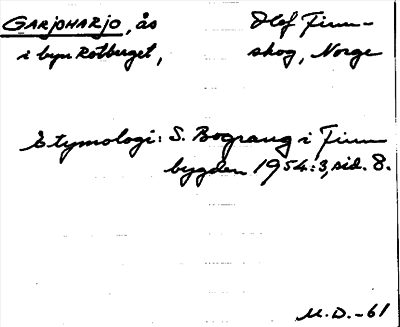 GARJOHARJO, ås
i byn Rotberget,
Olof Finn-
skog, Norge
Etymologi: S. Bograng i Finn
bygden 1954:3, sid. 8.
M.D.-61